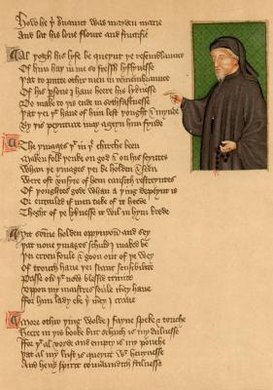 How he þi servaunt was mayden marie
And lat his love floure and fructifie
Al þogh his lyfe be queynt þe resemblaunce
Of him haþ in me so fressh lyflynesse
Þat to putte othir men in remembraunce
Of his persone I have heere his lyknesse
Do make to þis ende in sothfastnesse
Þat þei þt have of him lest þought & mynde
By þis peynture may ageyn him fynde
The ymages þt in þe chirche been
Maken folk þenke on god & on his seyntes
Whan þe ymages þei beholden & seen
Were oft unsyte of hem causith restreyntes
Of þoughtes gode whan a þing depeynt is
Or entailed if men take of it heede
Thoght of þe lyknesse it wil in hym brede
Yit somme holden oppynyoun and sey
Þat none ymages schuld imaked be
Þei erren foule & goon out of þe wey
Of trouth have þei scant sensibilite
Passe over þt now blessid trinite
Uppon my maistres soule mercy have
For him lady eke þi mercy I crave
More othir þing wolde I fayne speke & touche
Heere in þis booke but schuch is my dulnesse
For þt al voyde and empty is my pouche
Þat al my lust is queynt wt hevynesse
And hevy spirit comaundith stilnesse